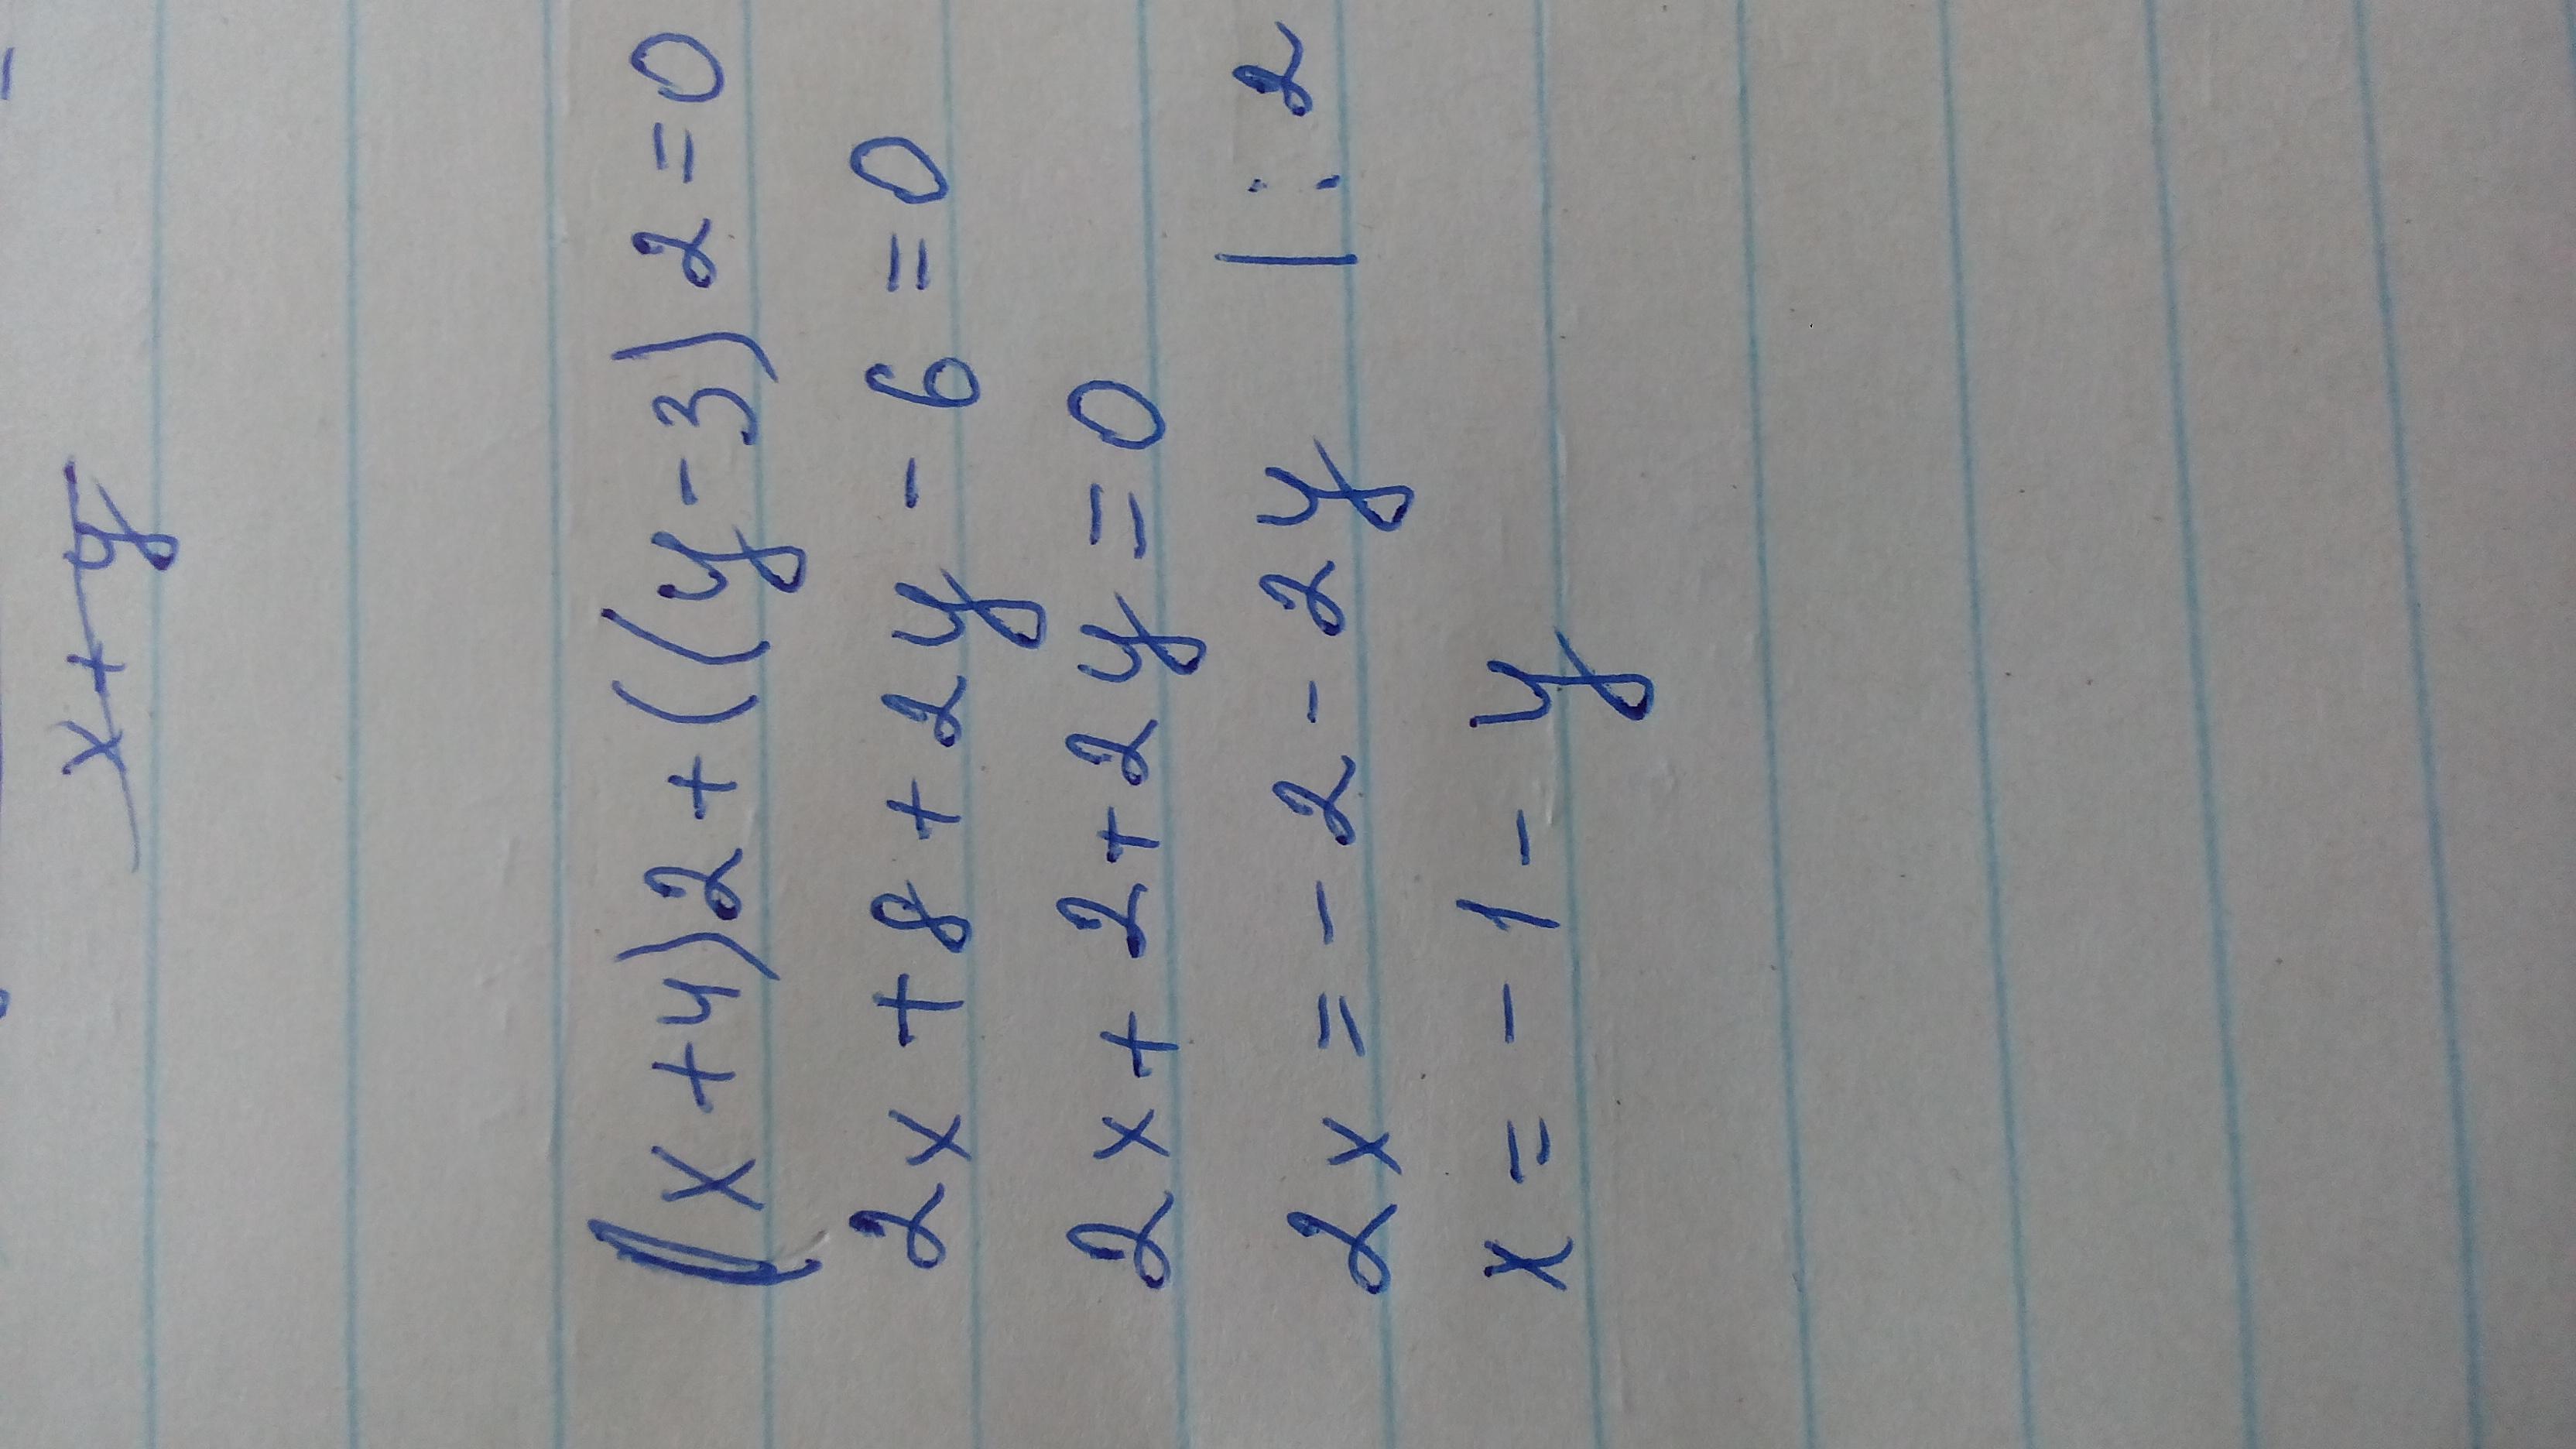 x+y
(x+4)2+((y-3)2=0
2x+8+2y-6=0
2x+2+2y=0
2x=-2-2y |:2
x=-1-y